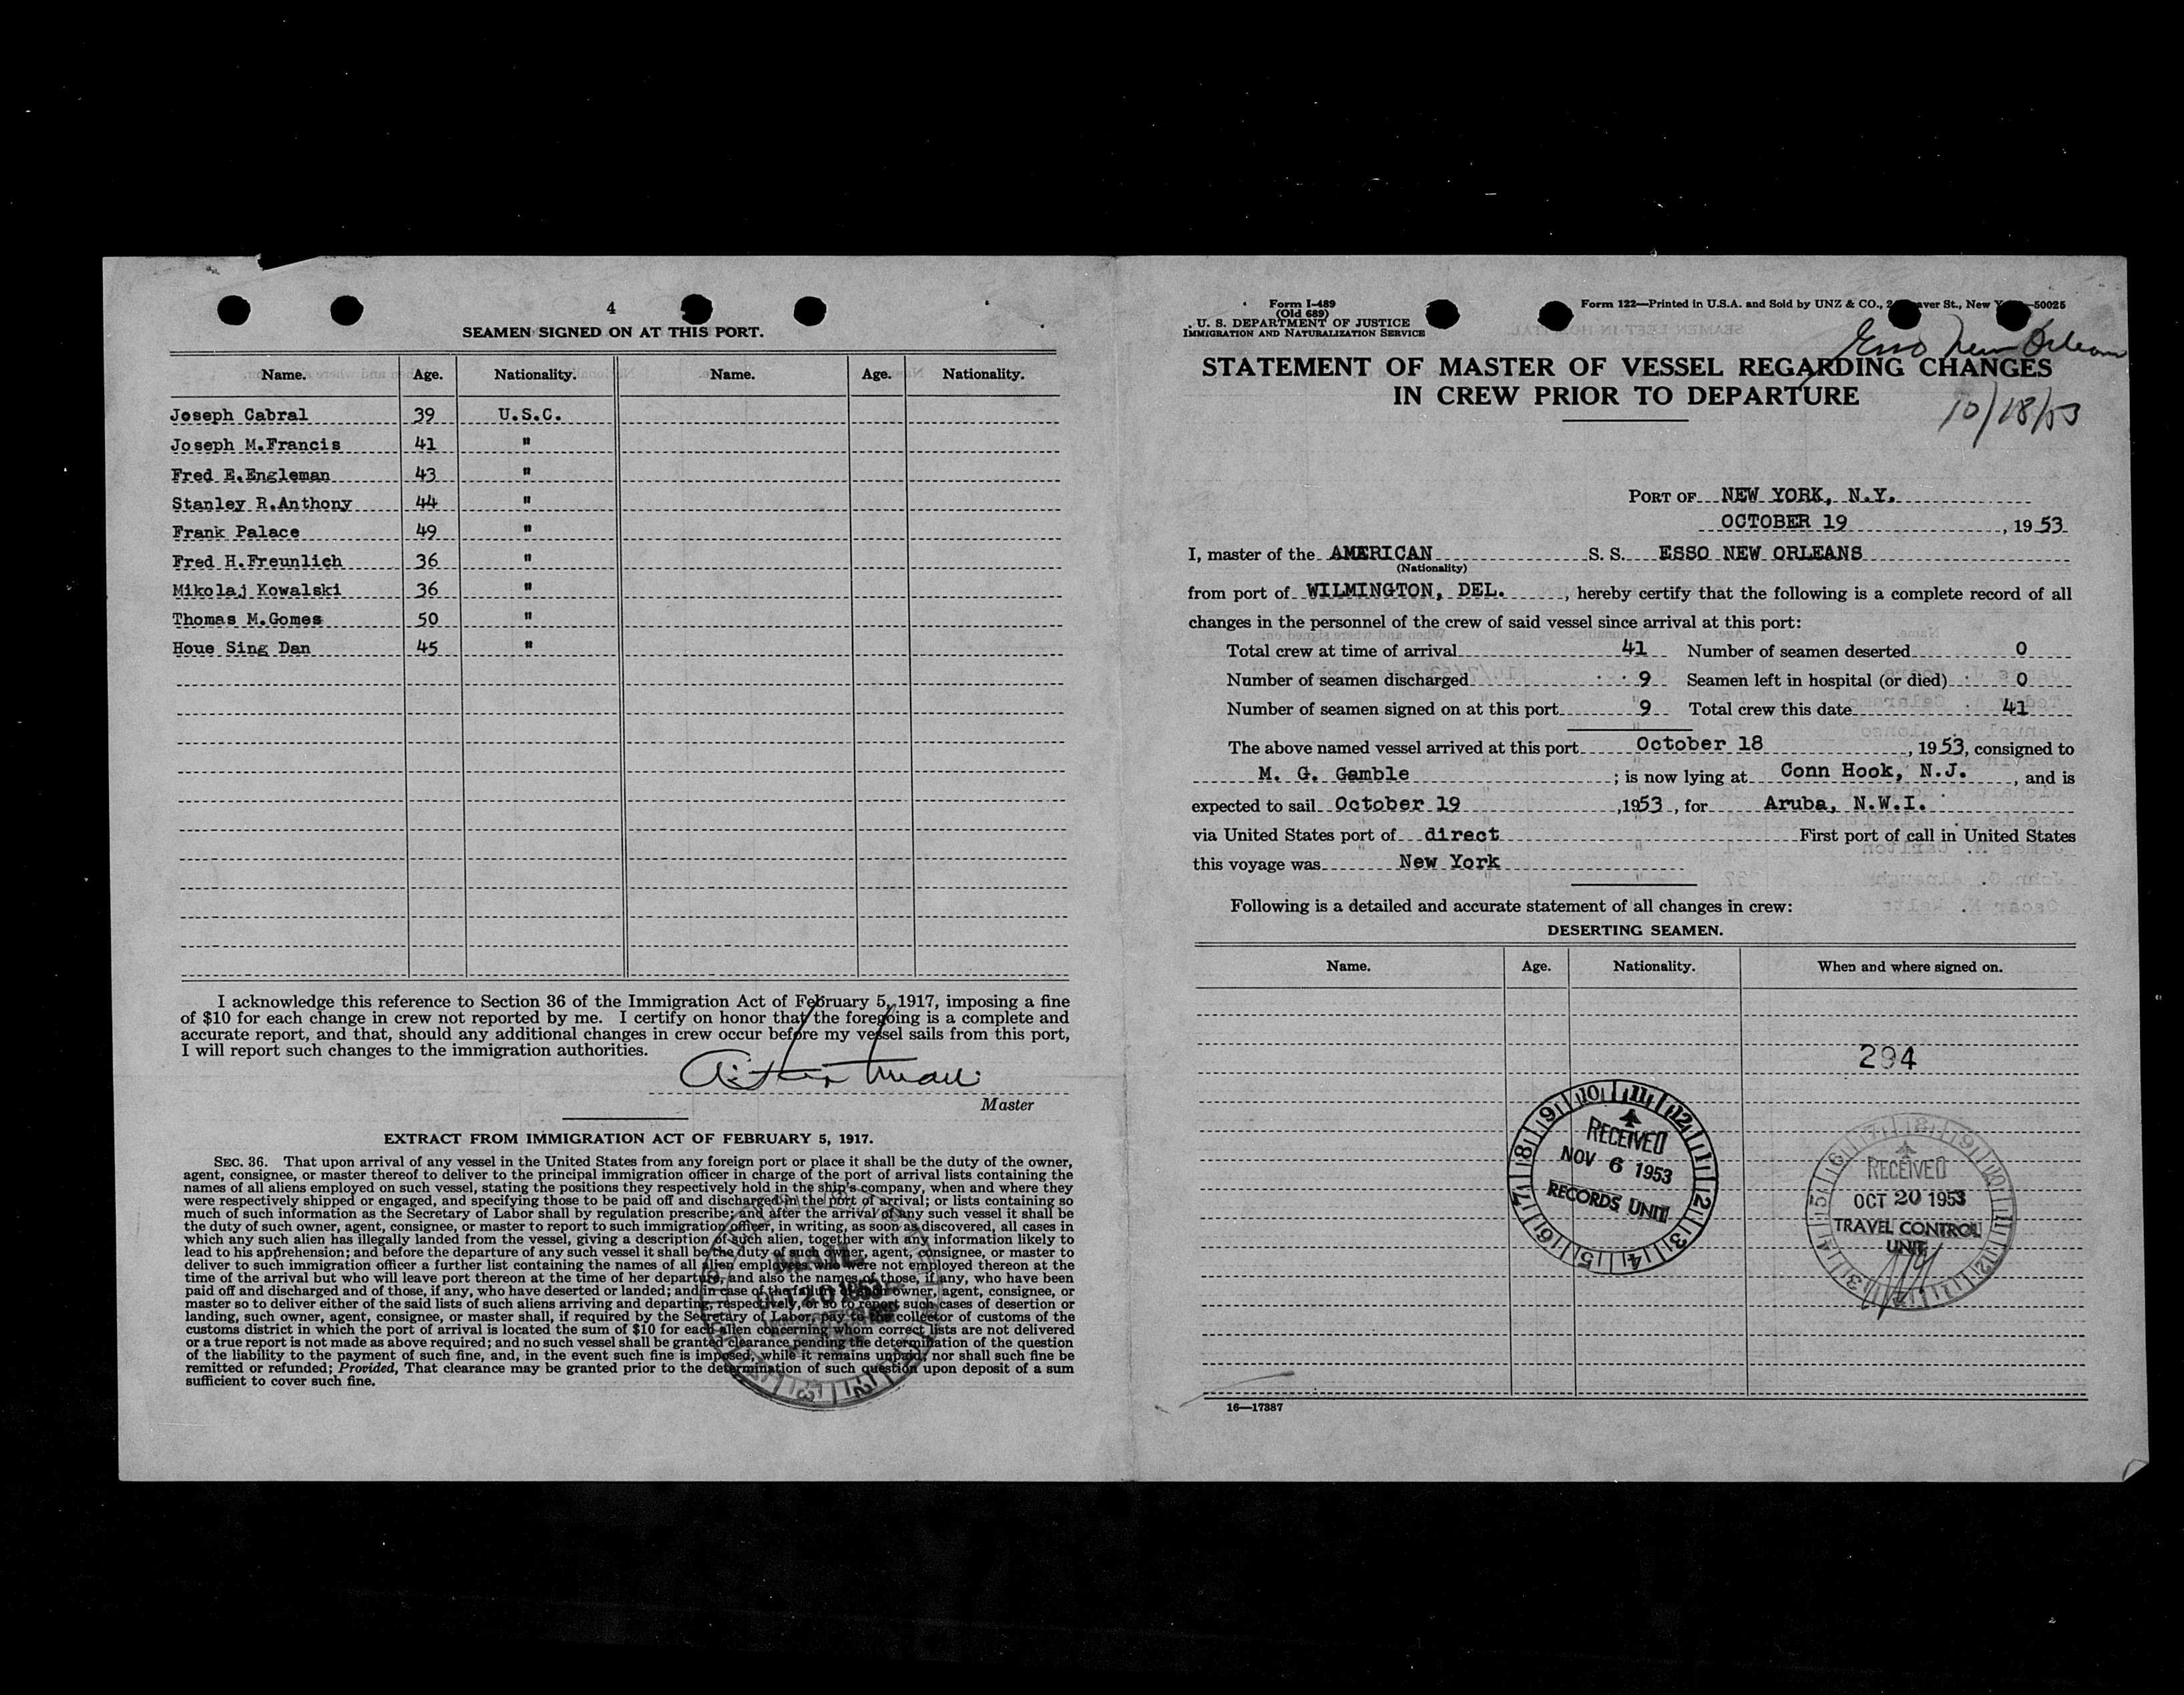 4
SEAMEN SIGNED ON AT THIS PORT.
Name. Age. Nationality. Name. Age. Nationality.
Joseph Cabral 39 U.S.C.
Joseph M.Francis 41 "
Fred E.Engleman 43 "
Stanley R.Anthony 44 "
Frank Palace 49 "
Fred H.Freunlich 36 "
Mikolaj Kowalski 36 "
Thomas M.Gomes 50 "
Houe Sing Dan 45 "
I acknowledge this reference to Section 36 of the Immigration Act of February 5, 1917, imposing a fine
of $10 for each change in crew not reported by me. I certify on honor that the foregoing is a complete and
accurate report, and that, should any additional changes in crew occur before my vessel sails from this port,
I will report such changes to the immigration authorities.
Master
EXTRACT FROM IMMIGRATION ACT OF FEBRUARY 5, 1917.
SEC. 36. That upon arrival of any vessel in the United States from any foreign port or place it shall be the duty of the owner,
agent, consignee, or master thereof to deliver to the principal immigration officer in charge of the port of arrival lists containing the
names of all aliens employed on such vessel, stating the positions they respectively hold in the ship's company, when and where they
were respectively shipped or engaged, and specifying those to be paid off and discharged in the port of arrival; or lists containing so
much of such information as the Secretary of Labor shall by regulation prescribe; and after the arrival of any such vessel it shall be
the duty of such owner, agent, consignee, or master to report to such immigration officer, in writing, as soon as discovered, all cases in
which any such alien has illegally landed from the vessel, giving a description of such alien, together with any information likely to
lead to his apprehension; and before the departure of any such vessel it shall be the duty of such owner, agent, consignee, or master to
deliver to such immigration officer a further list containing the names of all alien employees who were not employed thereon at the
time of the arrival but who will leave port thereon at the time of her departure, and also the names of those, if any, who have been
paid off and discharged and of those, if any, who have deserted or landed; and in case of the failure of such owner, agent, consignee, or
master so to deliver either of the said lists of such aliens arriving and departing, respectively, or so to report such cases of desertion or
landing, such owner, agent, consignee, or master shall, if required by the Secretary of Labor, pay to the collector of customs of the
customs district in which the port of arrival is located the sum of $10 for each alien concerning whom correct lists are not delivered
or a true report is not made as above required; and no such vessel shall be granted clearance pending the determination of the question
of the liability to the payment of such fine, and, in the event such fine is imposed, while it remains unpaid; nor shall such fine be
remitted or refunded; Provided, That clearance may be granted prior to the determination of such question upon deposit of a sum
sufficient to cover such fine.
MAIL
OCT 20 1953
Form I-489
(Old 689)
U. S. DEPARTMENT OF JUSTICE
IMMIGRATION AND NATURALIZATION SERVICE
Form 122—Printed in U.S.A. and Sold by UNZ & CO., St., New 50025
Esso New Orleans
STATEMENT OF MASTER OF VESSEL REGARDING CHANGES
IN CREW PRIOR TO DEPARTURE
10/18/53
PORT OF NEW YORK, N.Y.
OCTOBER 19, 1953
I, master of the AMERICAN S. S. ESSO NEW ORLEANS
(Nationality)
from port of WILMINGTON, DEL., hereby certify that the following is a complete record of all
changes in the personnel of the crew of said vessel since arrival at this port:
Total crew at time of arrival 41 Number of seamen deserted 0
Number of seamen discharged 9 Seamen left in hospital (or died) 0
Number of seamen signed on at this port 9 Total crew this date 41
The above named vessel arrived at this port October 18, 1953, consigned to
M. G. Gamble; is now lying at Conn Hook, N.J., and is
expected to sail October 19, 1953, for Aruba, N.W.I.
via United States port of direct First port of call in United States
this voyage was New York
Following is a detailed and accurate statement of all changes in crew:
DESERTING SEAMEN.
Name. Age. Nationality. When and where signed on.
294
RECEIVED
NOV 6 1953
RECORDS UNIT
RECEIVED
OCT 20 1953
TRAVEL CONTROL
UNIT
16—17387